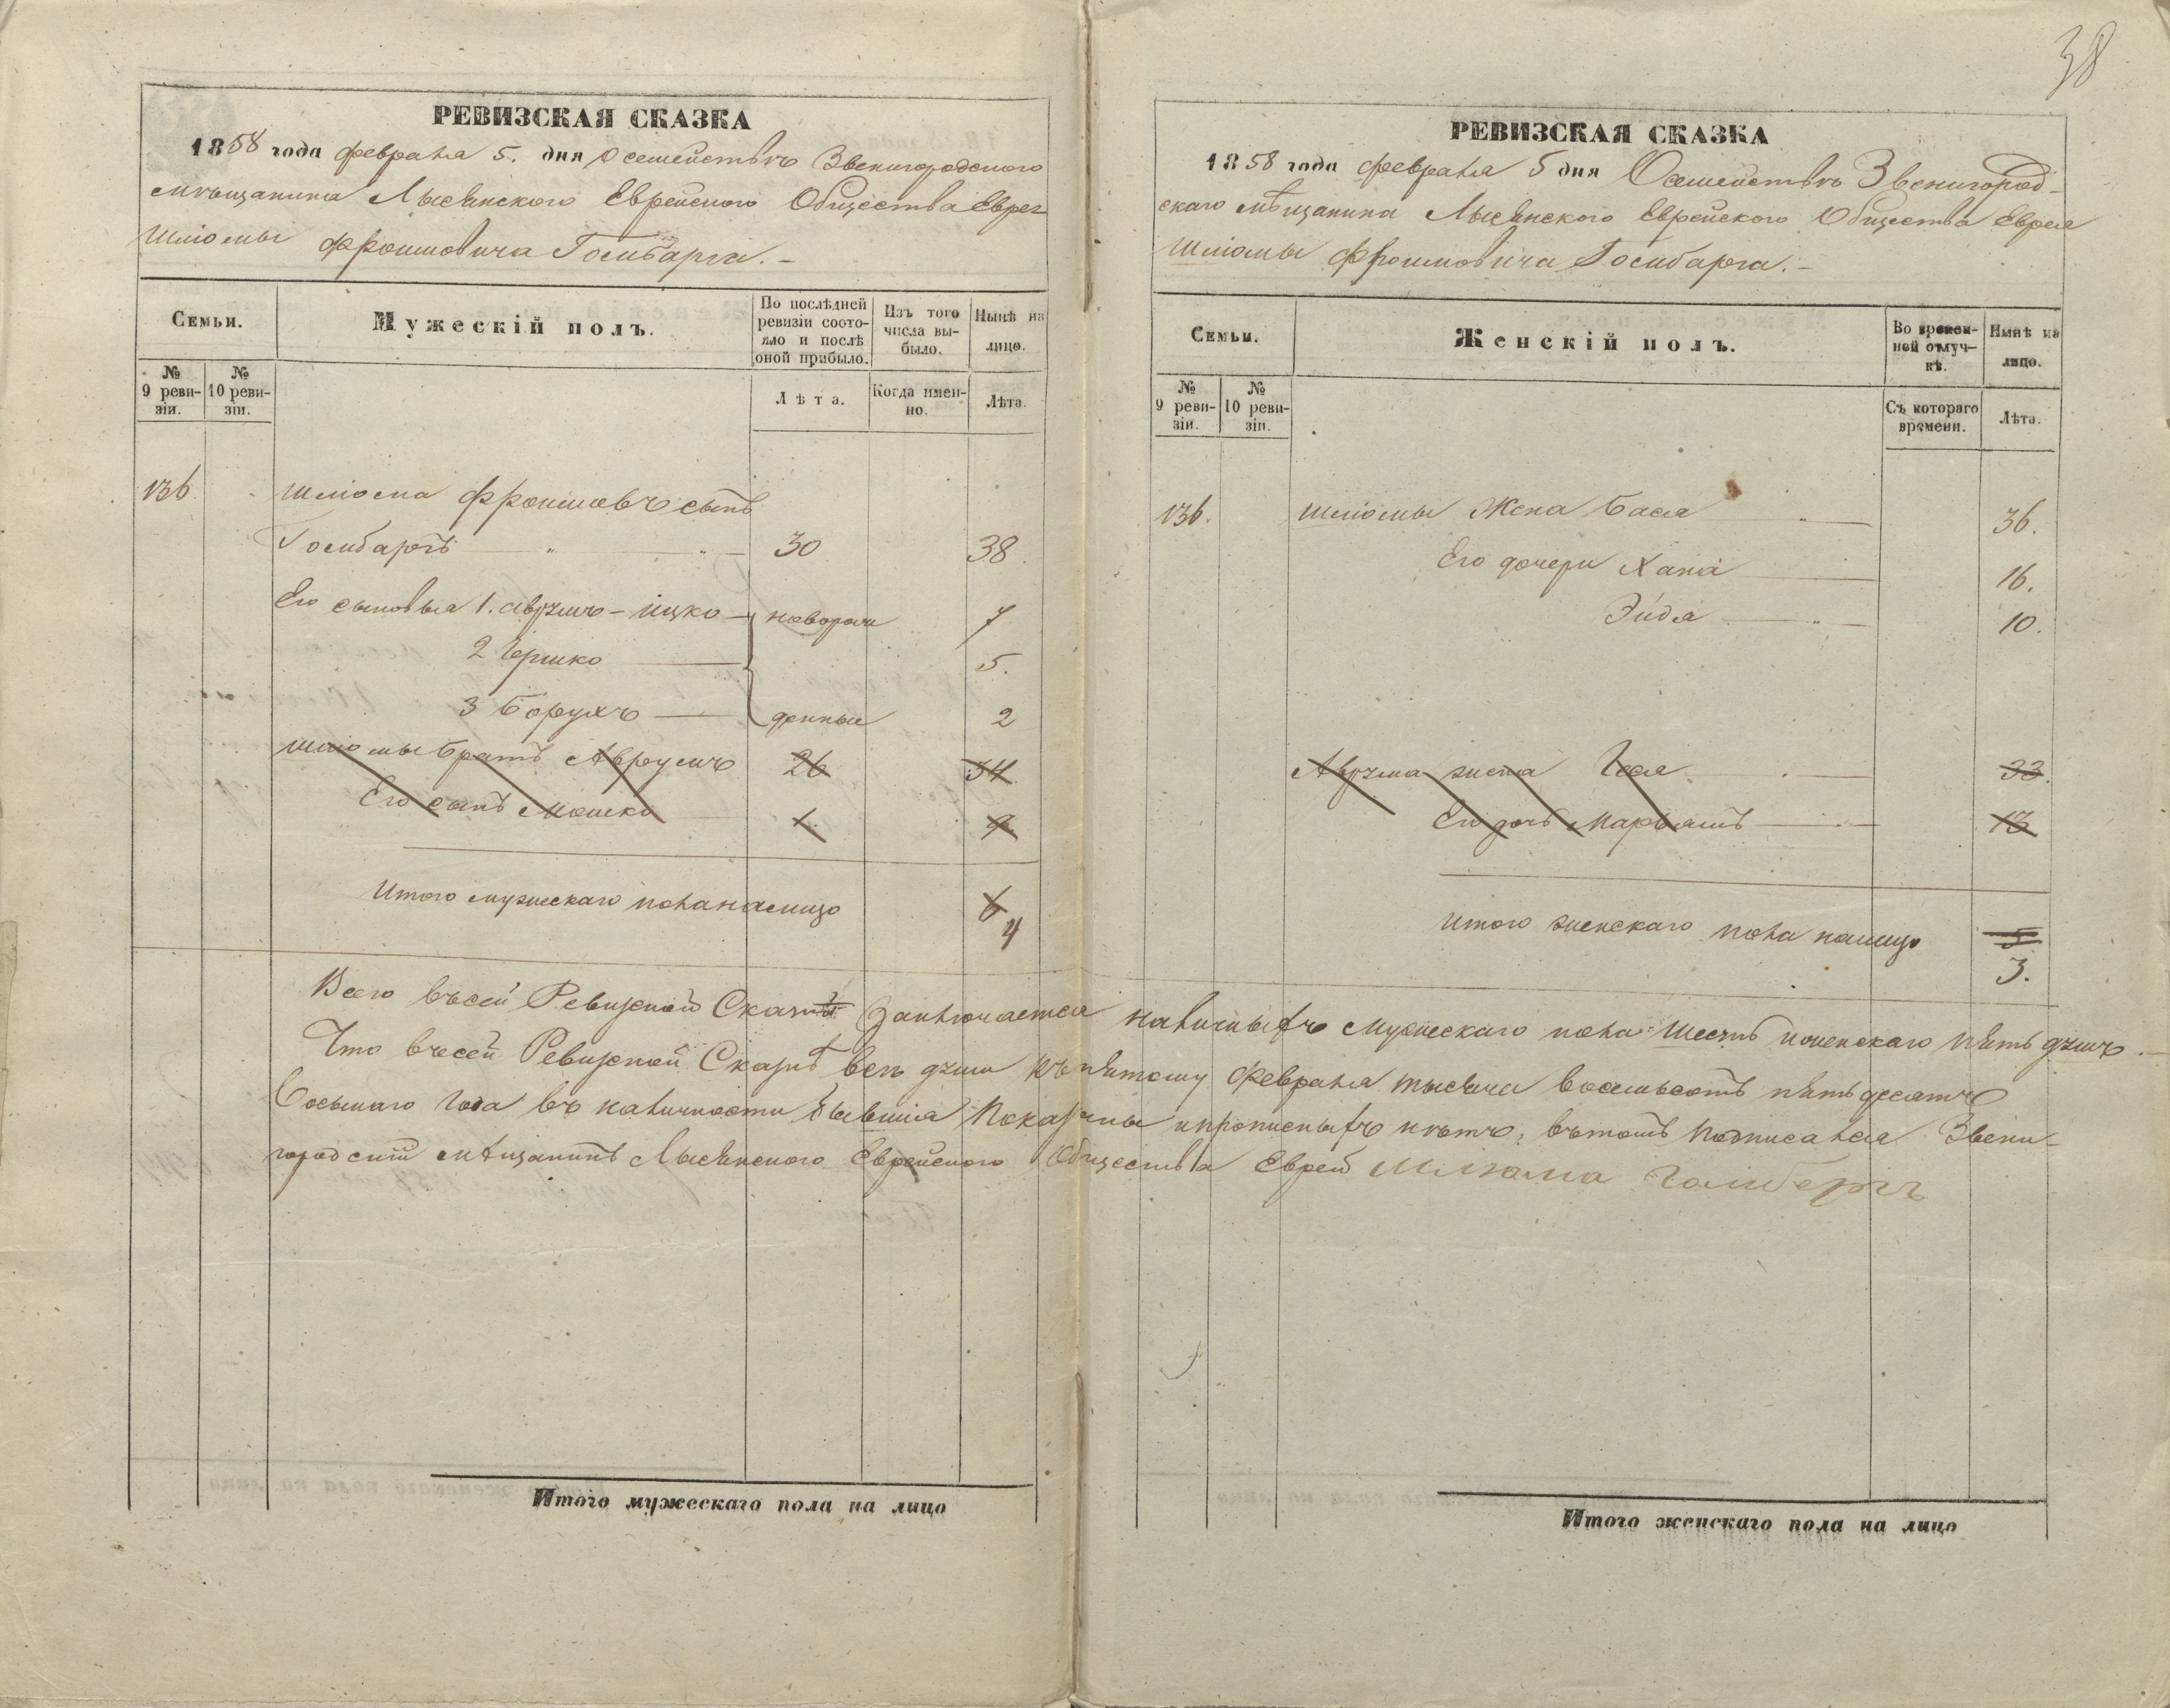 38
РЕВИЗСКАЯ СКАЗКА
1858 года февраля 5. дня О семействѣ Звенигородского
мѣщанина Лысянского Еврейского Общества Еврея
Шліомы Фроимовича Гомбарга. –
Семьи.
Мужескій полъ.
По послѣдней ревизіи состояло и послѣ оной прибыло.
Изъ того числа выбыло.
Нынѣ на лицо.
№ 9 ревизіи.
№ 10 ревизіи.
Лѣта.
Когда именно.
Лѣта.
136 Шліома Фроимовъ сынъ
Гомбаргъ 30 38
Его сыновья 1. Аврумъ – Ицко новорож 7
2 Гершко 5.
3 Борухъ денные 2
Шліомы братъ Аврумъ 26 34
Его сынъ Мошко 1 9
Итого мужескаго пола налицо 6
4
РЕВИЗСКАЯ СКАЗКА
1858 года февраля 5 дня О семействѣ Звенигород-
скаго мѣщанина Лысянского Еврейского Общества Еврея
Шліомы Фроимовича Гомбарга. –
Семьи.
Женскій полъ.
Во временной отлучкѣ.
Нынѣ на лицо.
№ 9 ревизіи.
№ 10 ревизіи.
Съ котораго времени.
Лѣта.
136. Шліомы жена Бася 36.
Его дочери Хана 16.
Эйдя 10.
Аврума жена Гися 33.
Его дочь Марьямъ 13
Итого женскаго пола налицо 5
3.
Всего въ сей Ревизской Сказкѣ Заключается наличныхъ мужескаго пола шесть и женскаго пять душъ. –
Что въ сей Ревизской Сказкѣ всѣ души къ пятому февраля тысяча восемьсотъ пятьдесятъ
восьмаго года въ наличности бывшія показаны и прописныхъ нѣтъ, въ томъ подписался Звени-
городскій мѣщанинъ Лысянского Еврейского Общества Еврей Шліома Гоимбергъ
Итого мужескаго пола на лицо
Итого женскаго пола на лицо